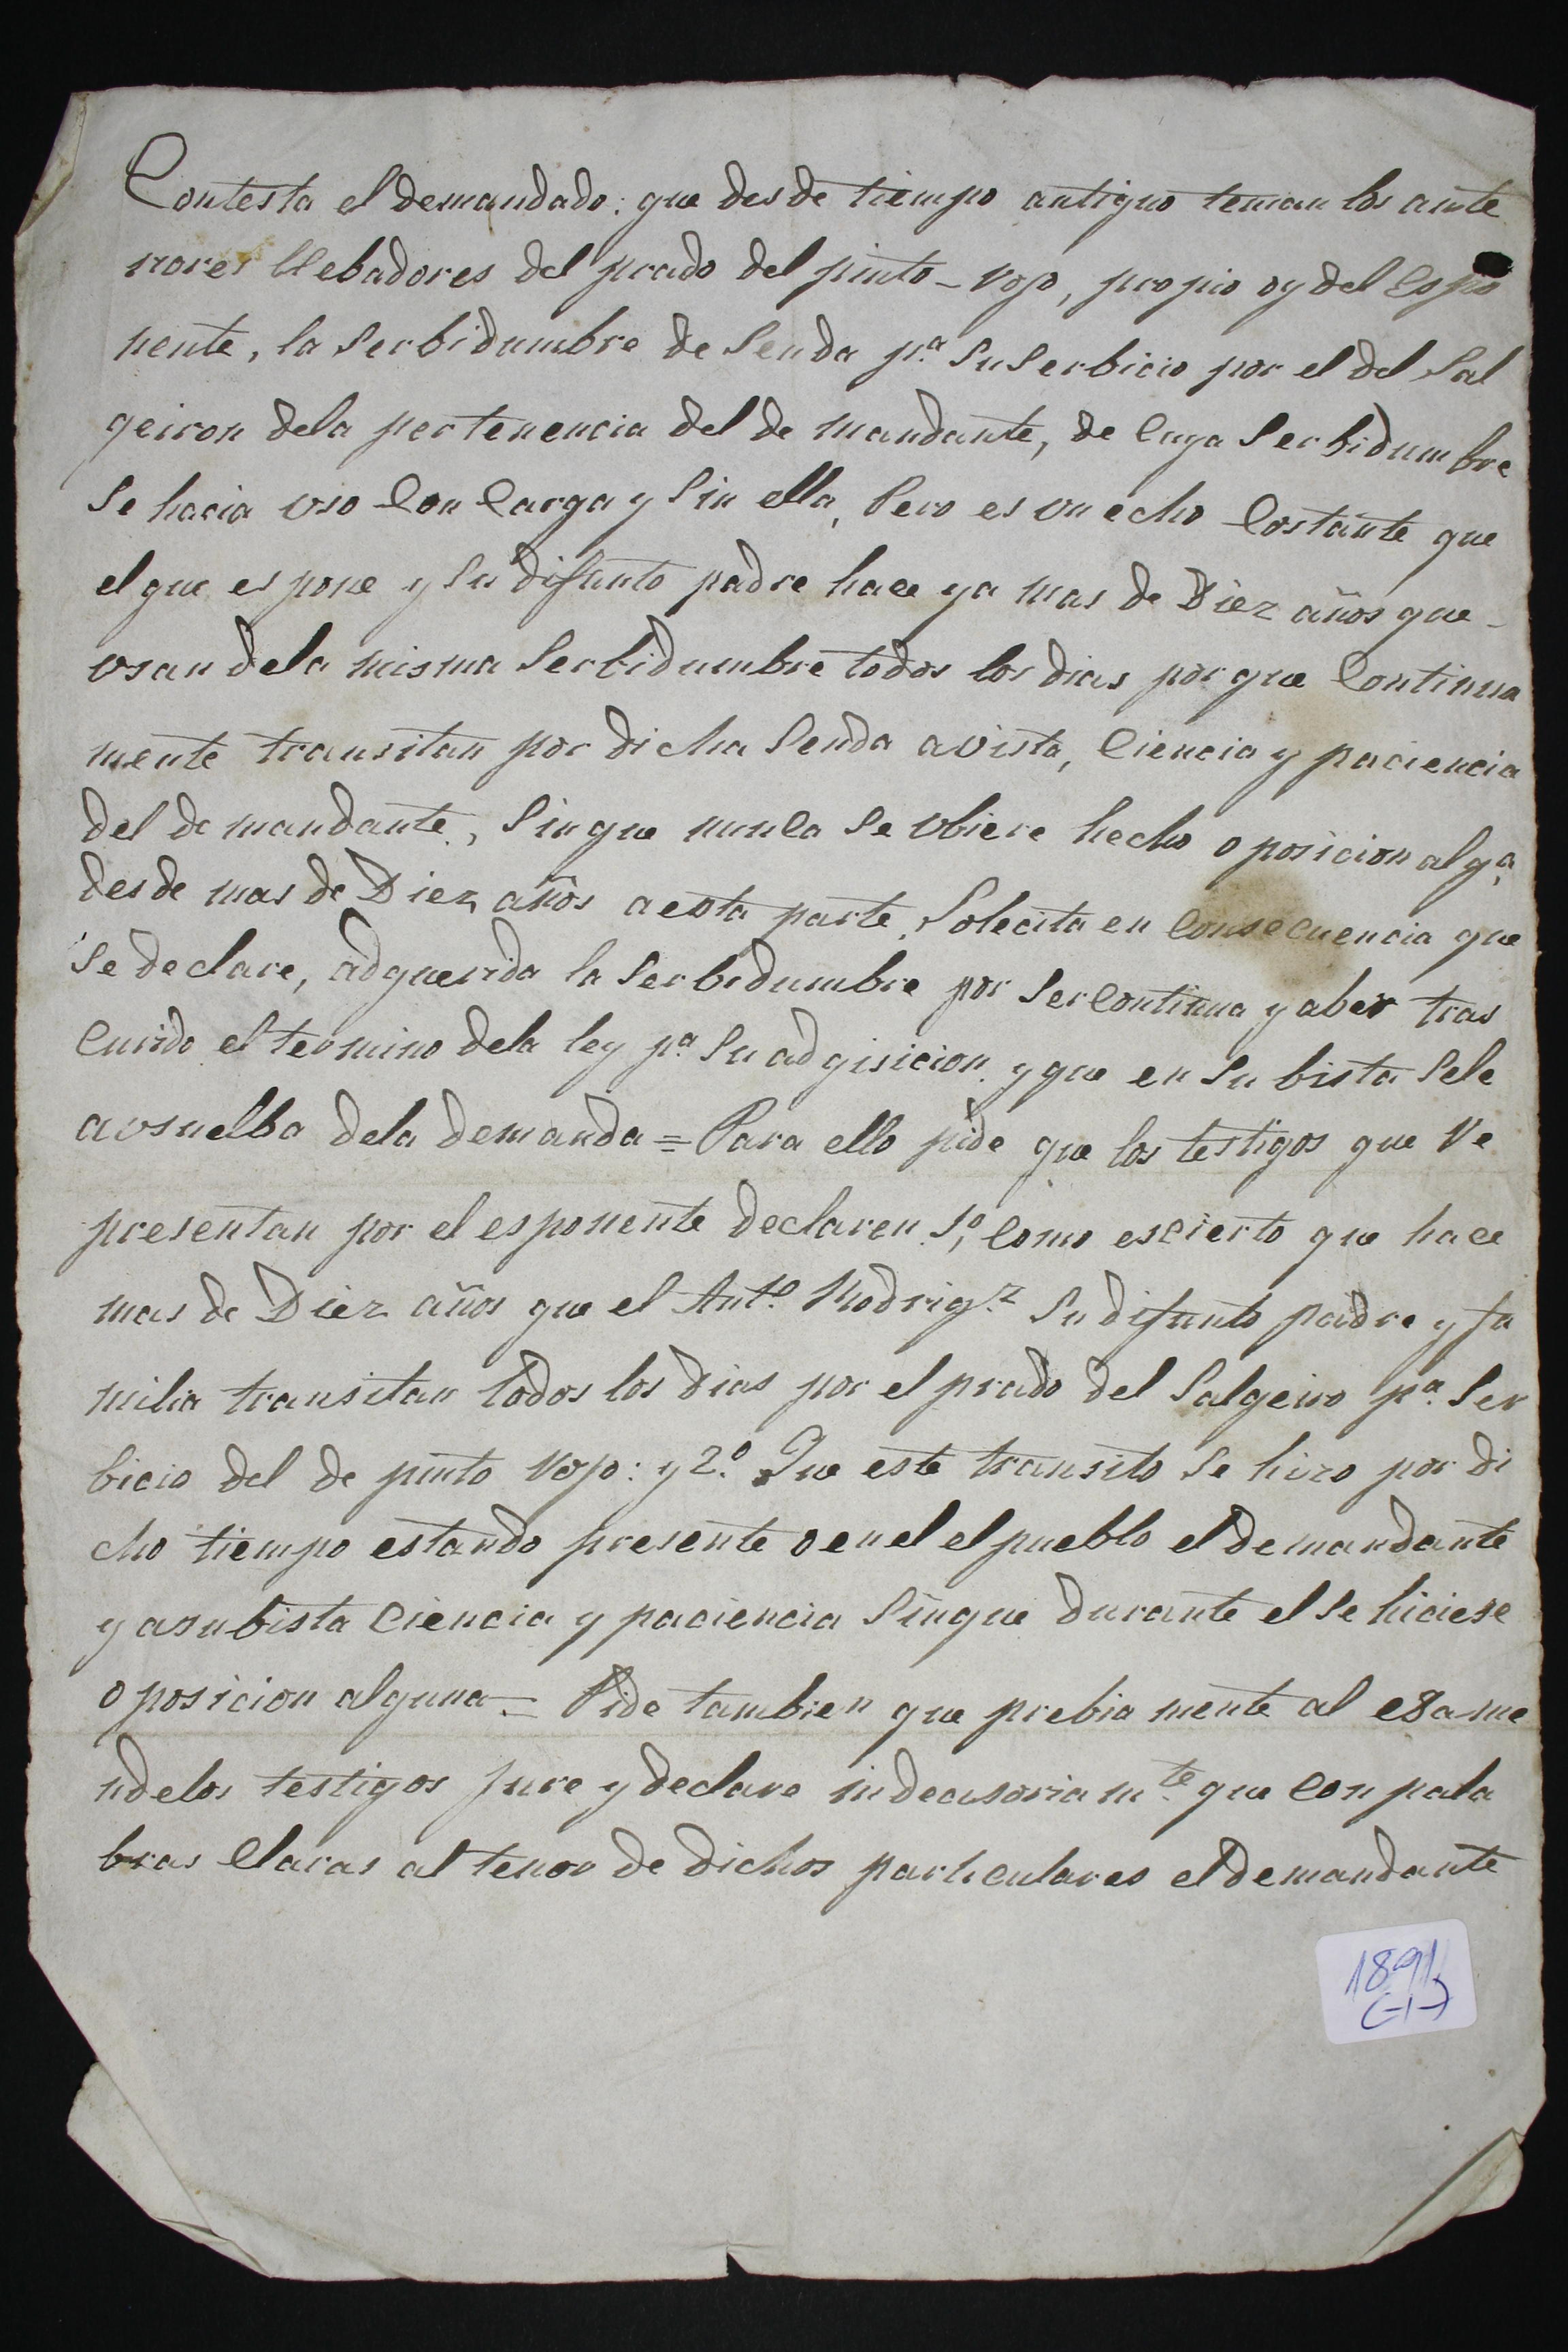 Contesta el demandado: que desde tiempo antiguo tenian los ante
riores llebadores del prado del pinto-rojo, propio oy del espo
nente, la serbidumbre de senda p.ª su serbicio por el del Sal
geiron dela pertenencia del de mandante, de cuya serbidumbre
se hacia uso con carga y sin ella, Pero es un echo costante que
el que espone y su difunto padre hace ya mas de Diez años que-
usan dela misma serbidumbre todos los dias porque continua
mente transitan por dicha senda avista, ciencia y paciencia
del demandante, sin que nunca se ubiere hecho oposicion alg.ª
desde mas de Diez años a esta parte. Solecita en consecuencia que
se declare, adquerida la serbedumbre por ser continua y aber tras
curido el termino dela ley p.ª su adqisicion y que en su bista se le
avsuelba dela demanda = Para ello pide que los testigos que se
presentan por el esponente declaren 1º, como es cierto que hace
mas de Diez años que el Ant.º Rodrig.z su difunto padre y fa
milia transitan todos los dias por el prado del Salgeiro p.ª ser
bicio del de pinto rojo: y 2.º Que este transito se hizo por di
cho tiempo estando presente o en el el pueblo el demandante
y asubista ciencia y paciencia sin que durante el se hiciese
oposicion alguna = Pide tambien que prebia mente al exame
ndelos testigos jure y declare indecisoriam.te que con pala
bras claras al tenor de dichos particulares el demandante
1891
(-1-)